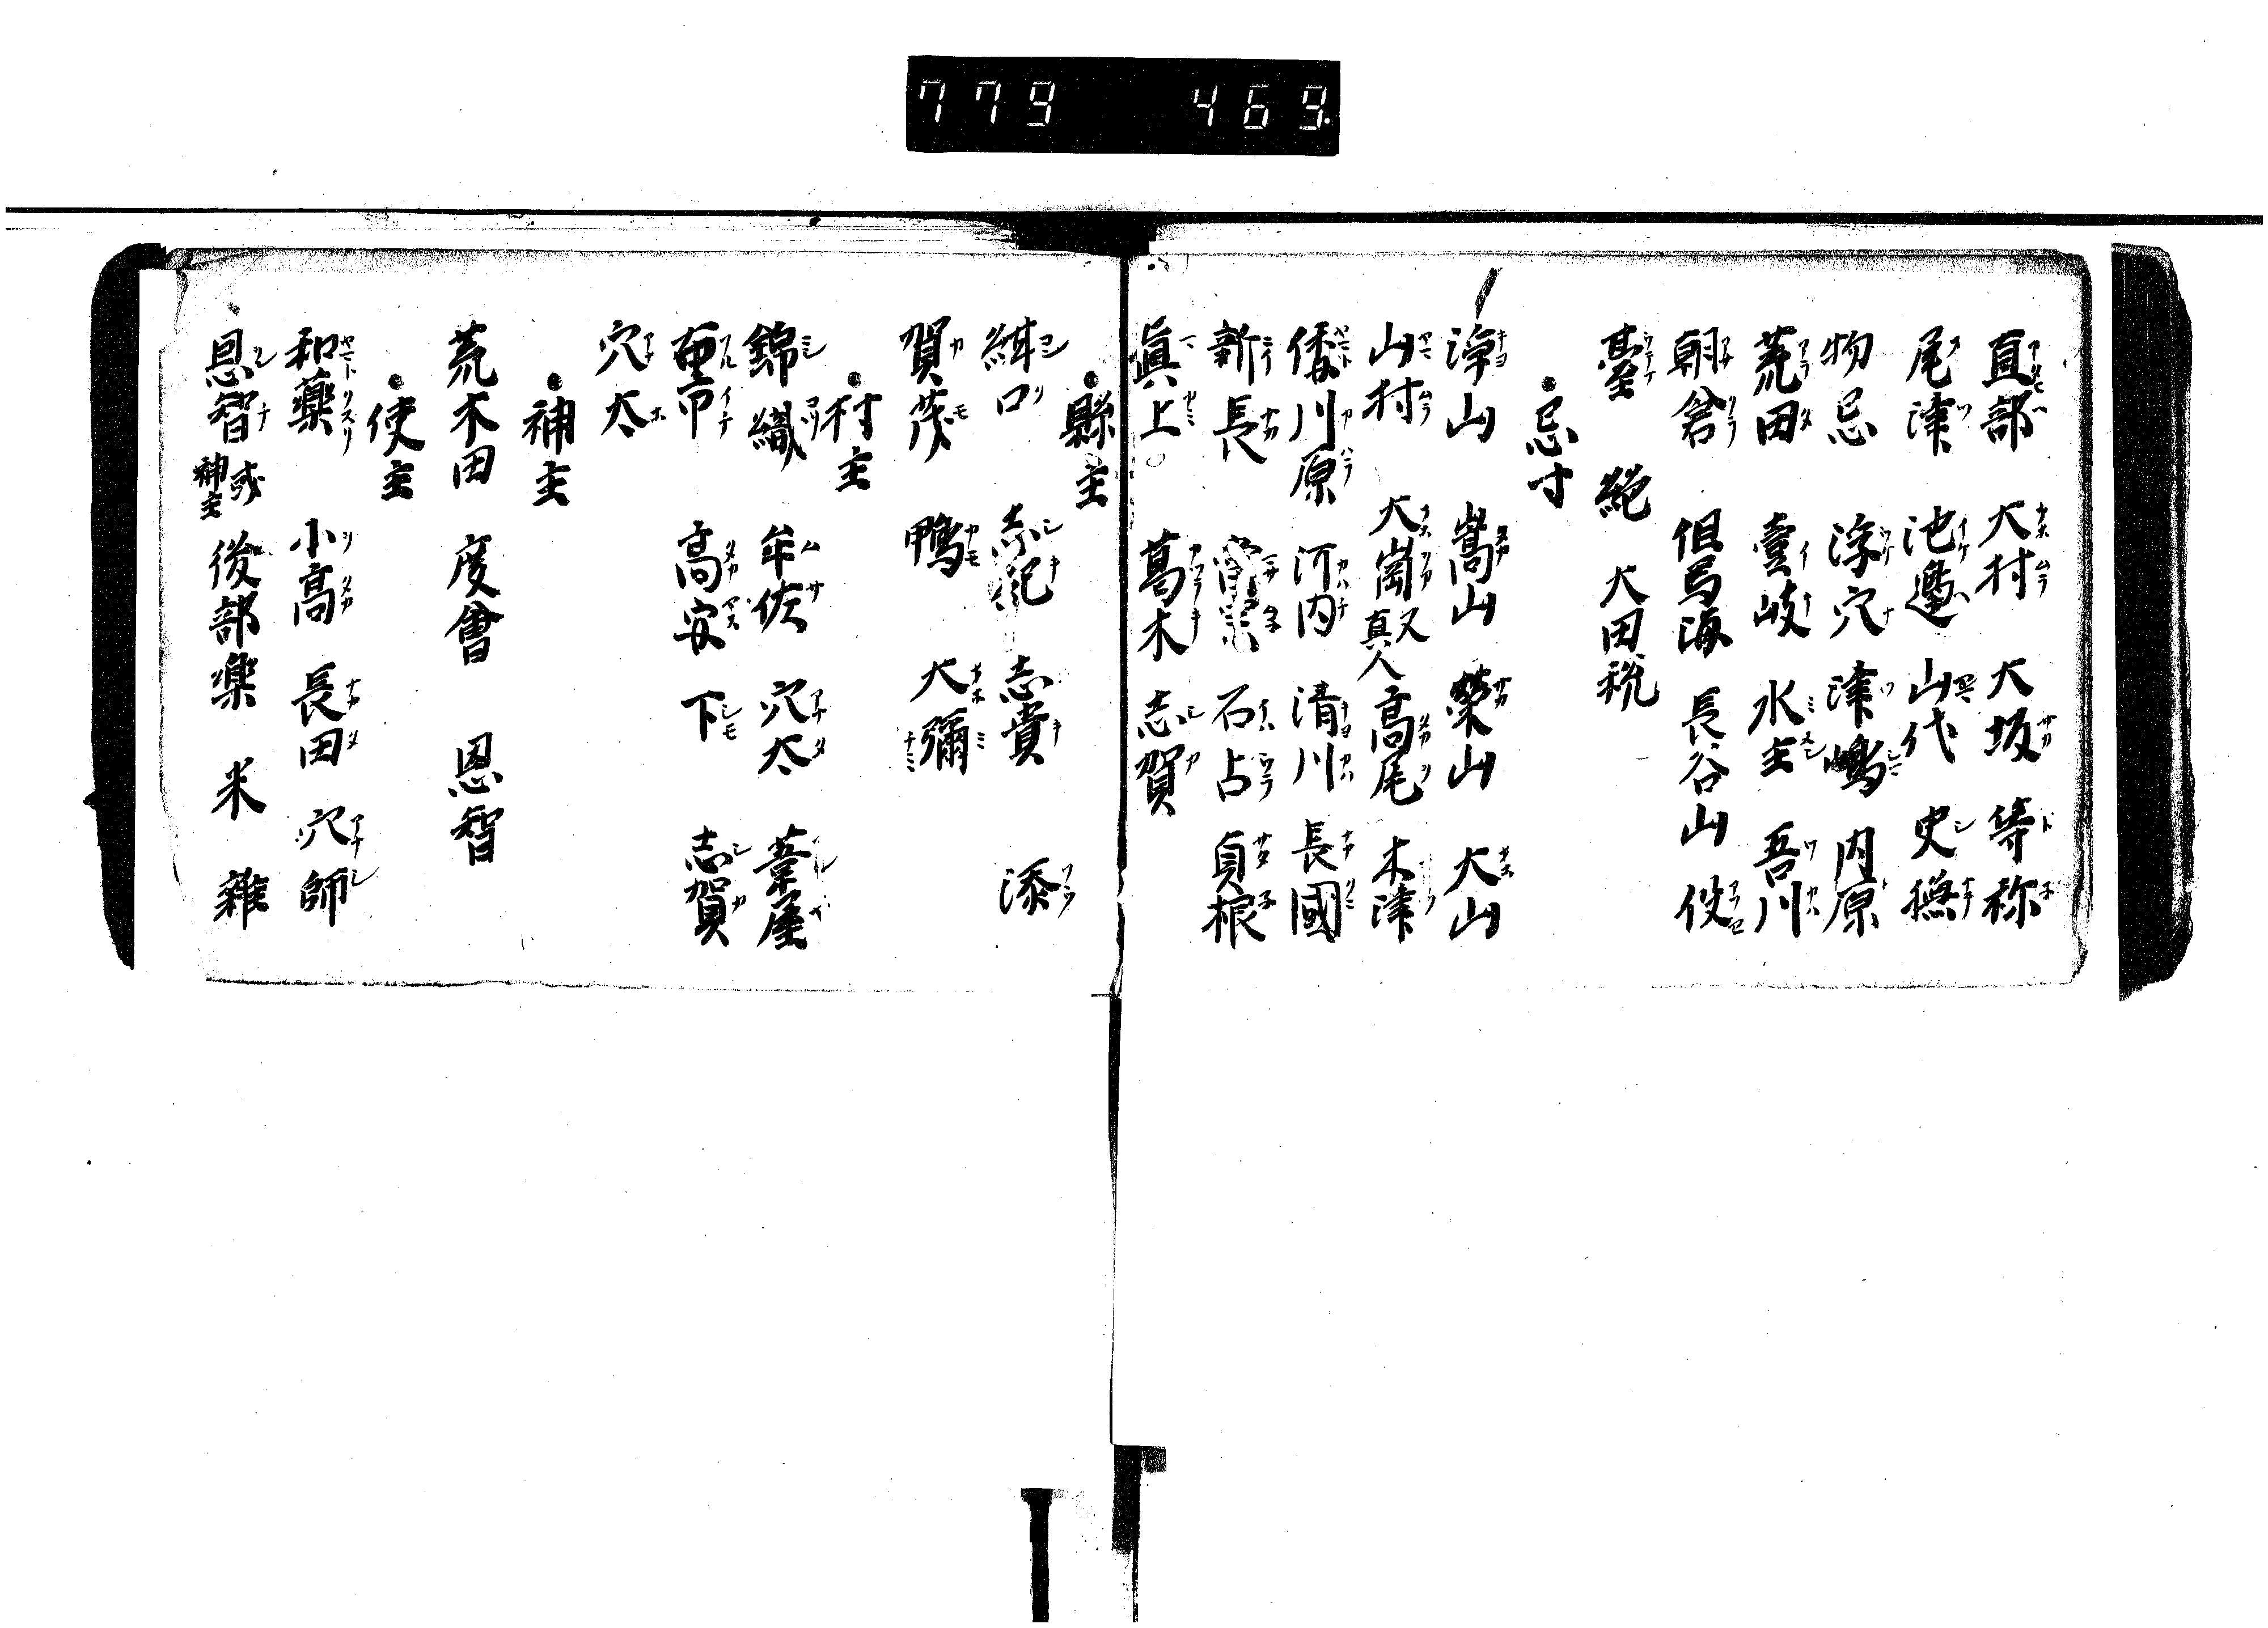 779 469
直部 大村 大坂 等祢
尾津 池邉 山代 史撫
物忌 浮穴 津嶋 内原
荒田 壹岐 水主 吾川
朝倉 但馬海 長谷山
臺 絁 大田祝
忌寸
淨山 嵩山 榮山 大山
山村 大崗 又真人 高尾 木津
倭川原 河内 清川 長國
新長 石占 貞根
眞上 葛木 志賀
縣主
紺口 志紀 志貴 添
賀茂 鴨 大彌
村主
錦織 牟佐 穴太 葦屋
高安 下 志賀
穴太
神主
荒木田 度會 恩智
使主
和藥 小高 長田 穴師
恩智 或神主 後部樂 米 雜